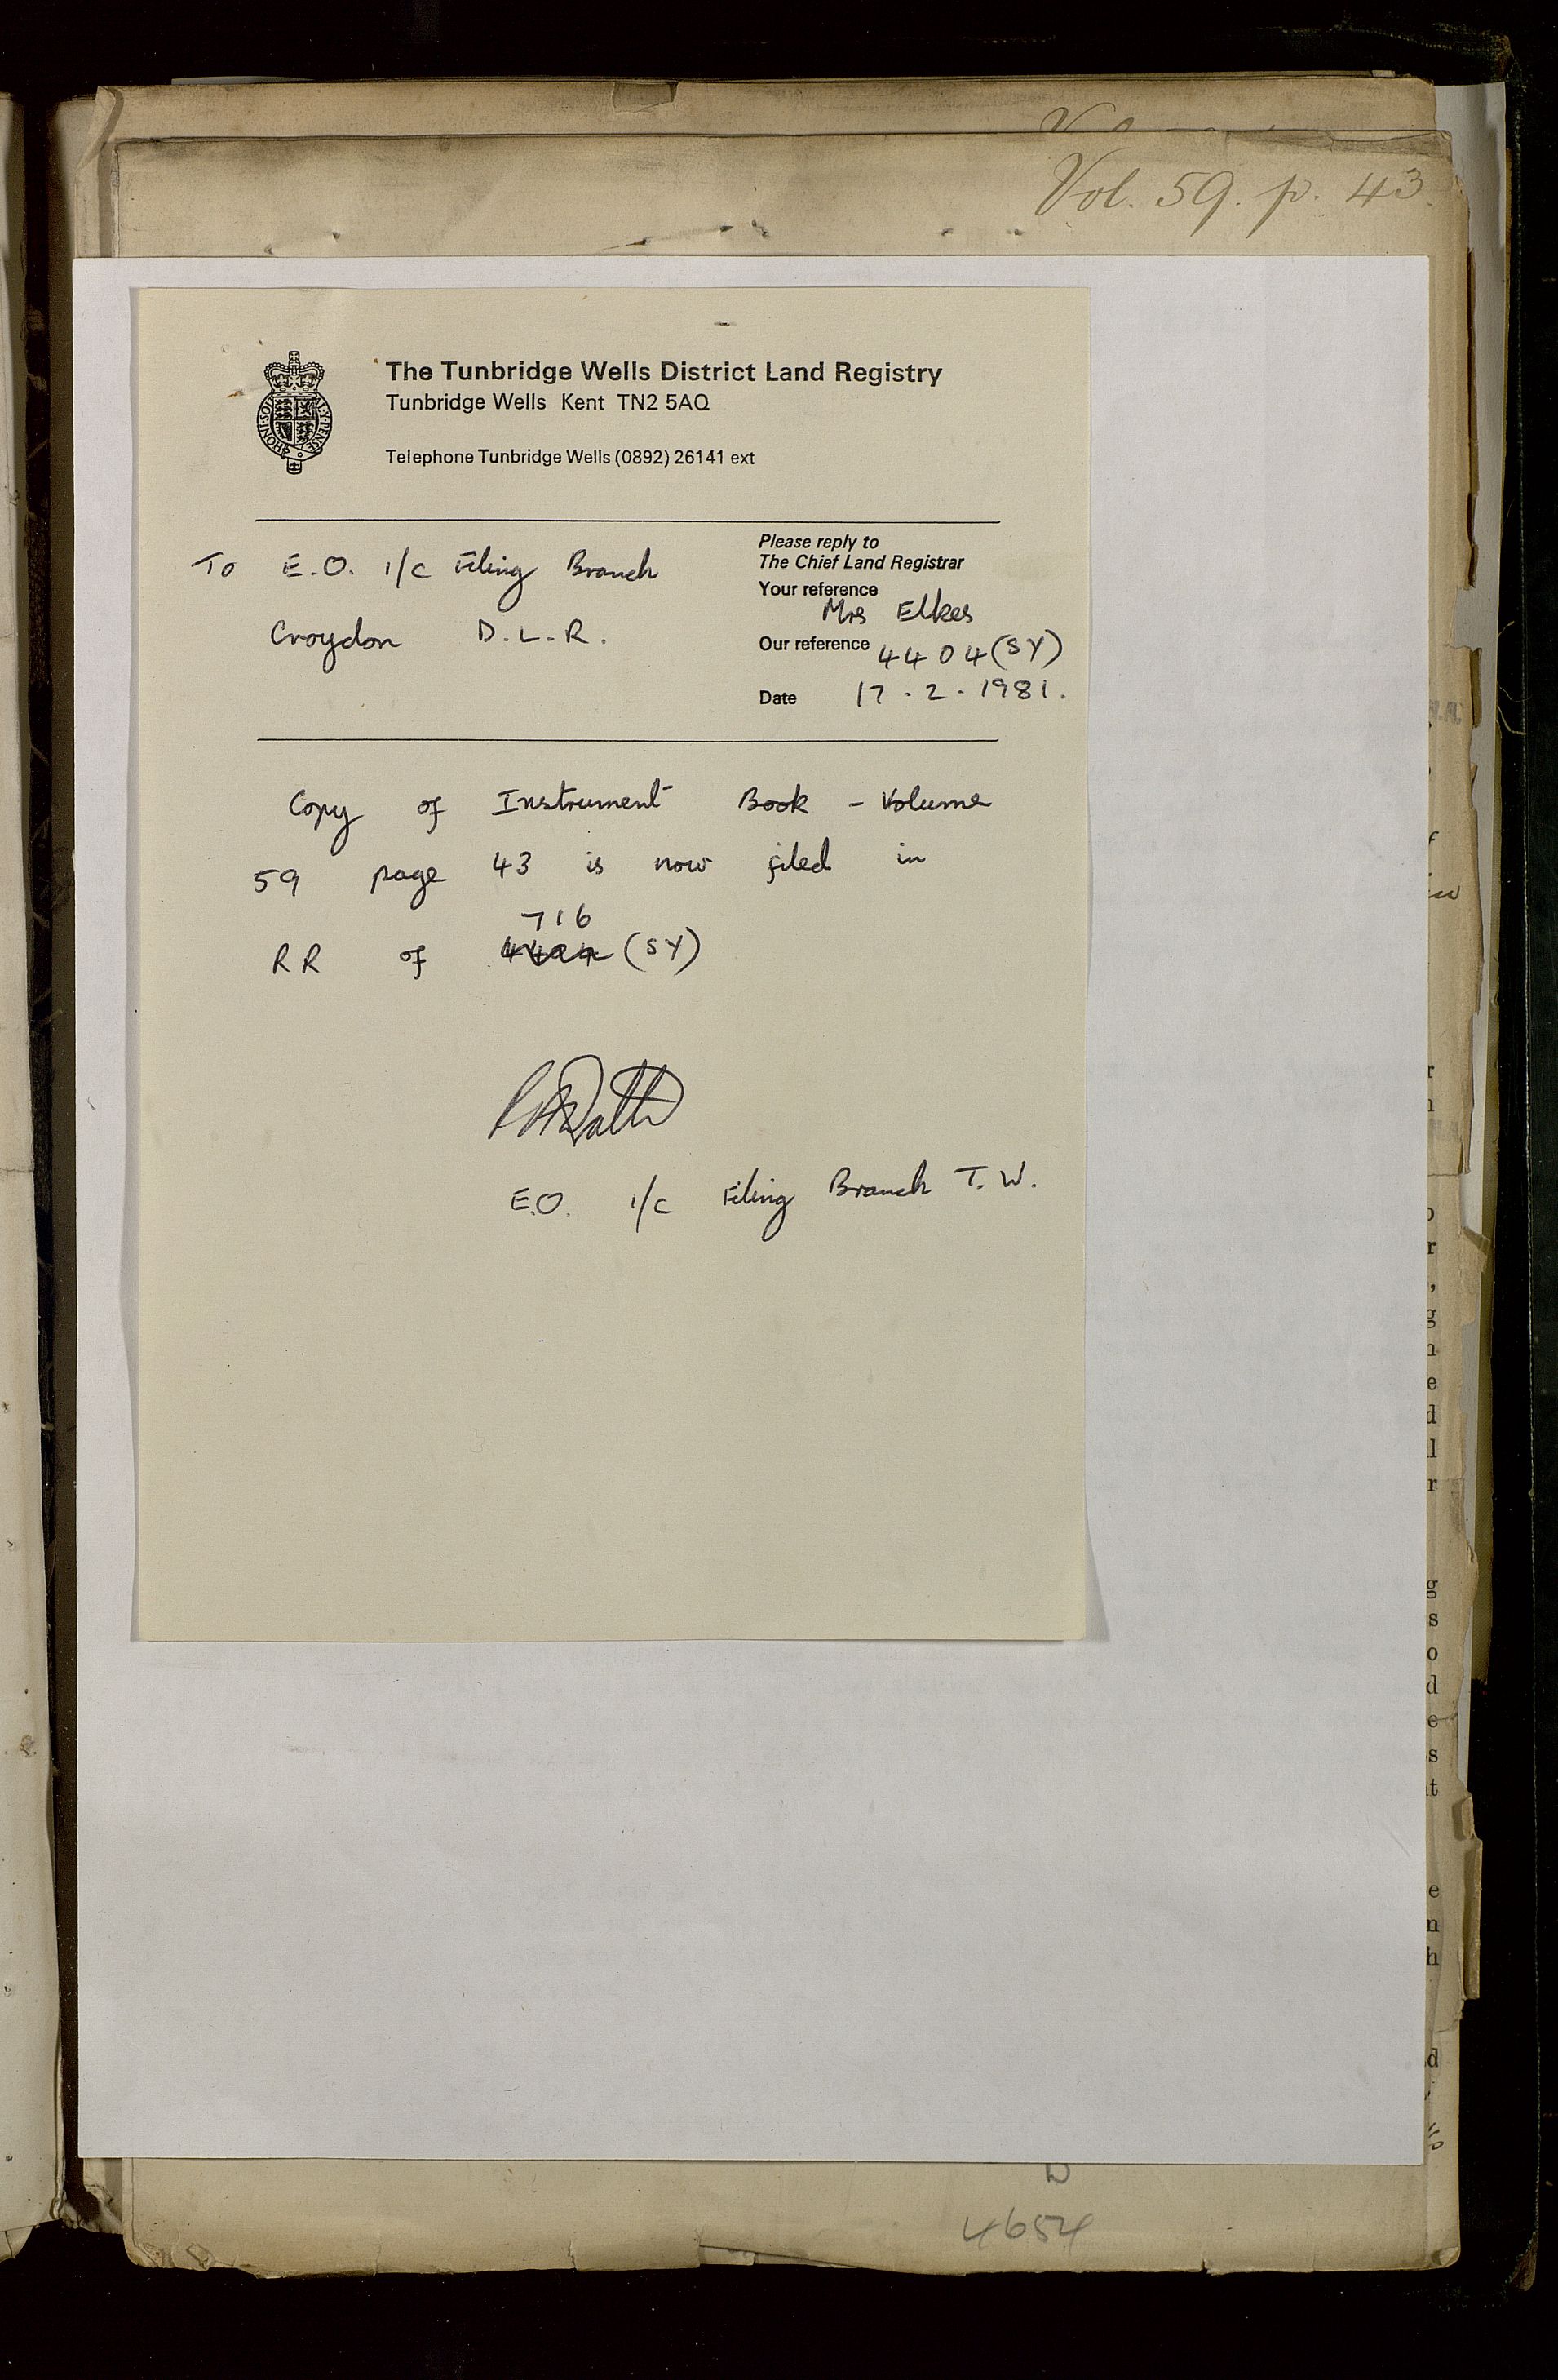 Vol. 59. p. 43.
The Tunbridge Wells District Land Registry
Tunbridge Wells Kent TN2 5AQ
Telephone Tunbridge Wells (0892) 26141 ext
To E.O. i/c Filing Branch
Croydon D.L.R.
Please reply to
The Chief Land Registrar
Your reference
Mrs Elkes
Our reference 4404(SY)
Date 17.2.1981.
Copy of Instrument Book - Volume
59 page 43 is now filed in
716
RR of 4404 (SY)
E.O. i/c Filing Branch T.W.
4654